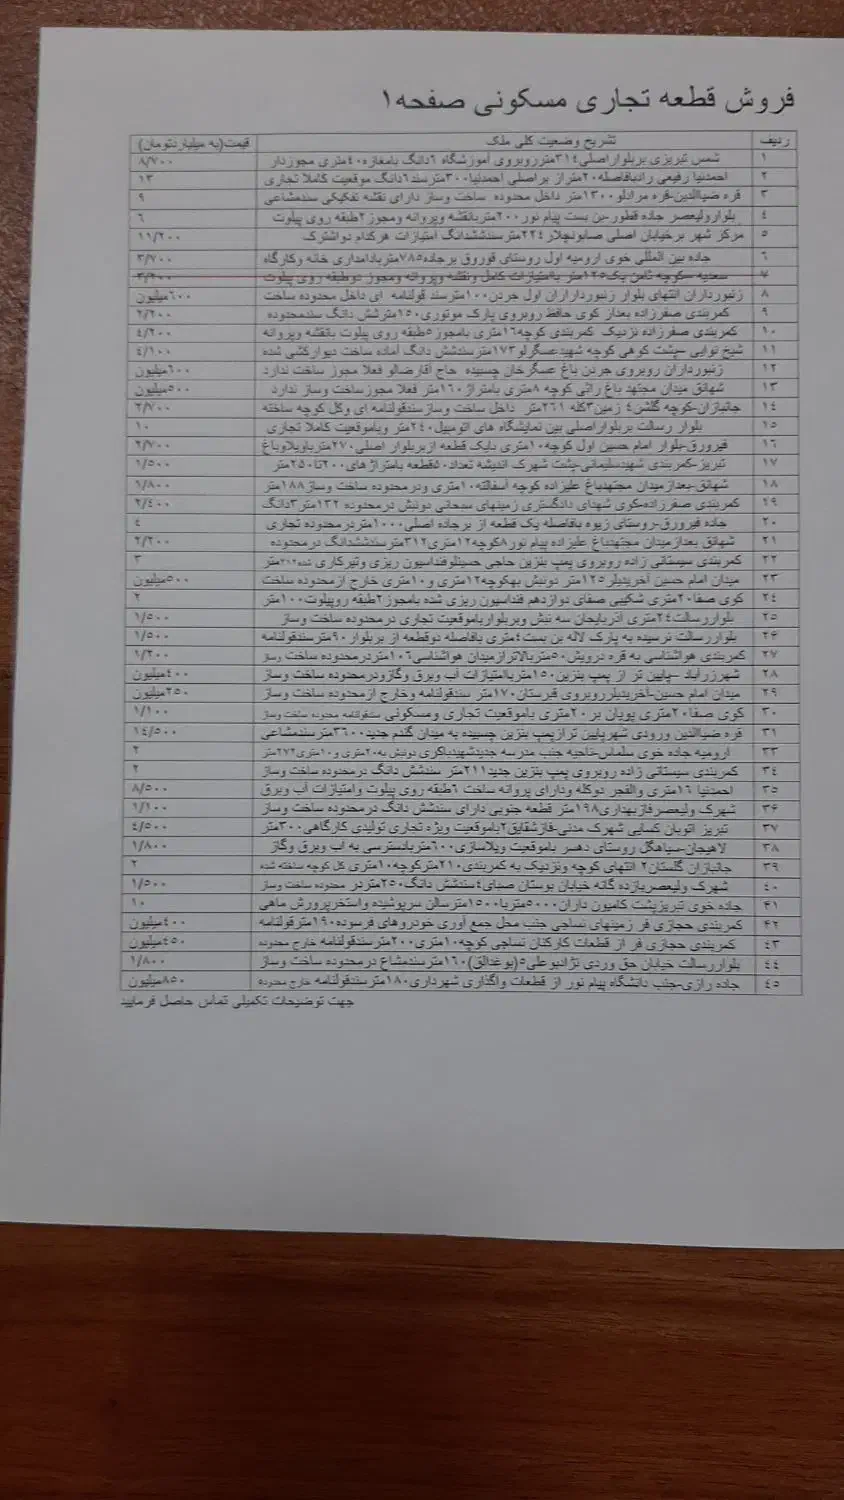 فروش قطعه تجاری مسکونی صفحه۱
ردیف تشریح وضعیت کلی ملک قیمت(به میلیاردتومان)
۱ شمس تبریزی بربلواراصلی۳۱۴مترروبروی آموزشگاه ۶دانگ بامغازه۴۰متری مجوزدار ۸/۷۰۰
۲ احمدنیا رفیعی رادبافاصله۲۰متراز براصلی احمدنیا۳۰۰مترسند۶دانگ موقعیت کاملا تجاری ۱۳
۳ قره ضیاالدین-قره مرادلو۱۳۰۰متر داخل محدوده ساخت وساز دارای نقشه تفکیکی سندمشاعی ۹
۴ بلوارولیعصر جاده قطور-بن بست پیام نور۲۰۰متربانقشه وپروانه ومجوز۲طبقه روی پیلوت ۶
۵ مرکز شهر برخیابان اصلی صابونچلار۲۲۴مترسندششدانگ امتیازات هرکدام دواشترک ۱۱/۲۰۰
۶ جاده بین المللی خوی ارومیه اول روستای قوروق برجاده۷۸۵متربادامداری خانه وکارگاه ۳/۷۰۰
۷ سعدیه -کوچه ثامن یک۱۲۵متر بامتیازات کامل ونقشه وپروانه ومجوز دوطبقه روی پیلوت ۳/۲۰۰
۸ زنبورداران انتهای بلوار زنبورداران اول جردن۱۰۰مترسند قولنامه ای داخل محدوده ساخت ۶۰۰میلیون
۹ کمربندی صفرزاده بعداز کوی حافظ روبروی پارک موتوری۱۵۰مترشش دانگ سندمحدوده ۲/۲۰۰
۱۰ کمربندی صفرزاده نزدیک کمربندی کوچه۱۶متری بامجوز۵طبقه روی پیلوت بانقشه وپروانه ۴/۲۰۰
۱۱ شیخ نوایی -پشت کوهی کوچه شهیدعسگرلو۱۷۳مترسندشش دانگ آماده ساخت دیوارکشی شده ۴/۱۰۰
۱۲ زنبورداران روبروی جردن باغ عسگرخان چسبیده حاج آقارضالو فعلا مجوز ساخت ندارد ۶۰۰میلیون
۱۳ شهانق میدان مجتهد باغ راثی کوچه ۸متری بامتراژ۱۶۰متر فعلا مجوزساخت وساز ندارد ۵۰۰میلیون
۱۴ جانبازان-کوچه گلشن۴ زمین۳کله ۲۶۱متر داخل ساخت وسازسندقولنامه ای وکل کوچه ساخته ۲/۷۰۰
۱۵ بلوار رسالت بربلواراصلی بین نمایشگاه های اتومبیل۲۴۰متر وباموقعیت کاملا تجاری ۱۰
۱۶ فیرورق-بلوار امام حسین اول کوچه۱۰متری بایک قطعه ازبربلوار اصلی۲۷۰مترباویلاوباغ ۲/۷۰۰
۱۷ تبریز-کمربندی شهیدسلیمانی-پشت شهرک اندیشه تعداد۵۰قطعه بامتراژهای۲۰۰تا۲۵۰متر ۱/۵۰۰
۱۸ شهانق-بعدازمیدان مجتهدباغ علیزاده کوچه آسفالته۱۰متری ودرمحدوده ساخت وساز۱۸۸متر ۱/۸۰۰
۱۹ کمربندی صفرزاده-کوی شهدای دادگستری زمینهای سبحانی دونبش درمحدوده ۱۳۲متر۳دانگ ۲/۴۰۰
۲۰ جاده فیرورق-روستای زیوه بافاصله یک قطعه از برجاده اصلی۱۰۰۰متردرمحدوده تجاری ۴
۲۱ شهانق بعدازمیدان مجتهدباغ علیزاده پیام نور۸کوچه۱۲متری۳۱۲مترسندششدانگ درمحدوده ۲/۲۰۰
۲۲ کمربندی سیستانی زاده روبروی پمپ بنزین حاجی حسینلوفنداسیون ریزی وتیرکاری شده۲۰۲متر ۳
۲۳ میدان امام حسین آخریدیلر۱۲۵متر دونبش بهکوچه۱۲متری و۱۰متری خارج ازمحدوده ساخت ۵۰۰میلیون
۲۴ کوی صفا۲۰متری شکیبی صفای دوازدهم فنداسیون ریزی شده بامجوز۲طبقه روپیلوت۱۰۰متر ۲
۲۵ بلواررسالت۲۴متری آذربایجان سه نبش وبربلوارباموقعیت تجاری درمحدوده ساخت وساز ۱/۵۰۰
۲۶ بلواررسالت نرسیده به پارک لاله بن بست۴متری بافاصله دوقطعه از بربلوار۹۰مترسندقولنامه ۱/۵۰۰
۲۷ کمربندی هواشناسی به قره درویش۵۰متربالاترازمیدان هواشناسی۱۰۶متردرمحدوده ساخت وساز ۱/۲۰۰
۲۸ شهرزرآباد -پایین تر از پمپ بنزین۱۵۰مترباامتیازات آب وبرق وگازودرمحدوده ساخت وساز ۴۰۰میلیون
۲۹ میدان امام حسین-آخریدیلرروبروی قبرستان۱۷۰متر سندقولنامه وخارج ازمحدوده ساخت وساز ۲۵۰میلیون
۳۰ کوی صفا۲۰متری پویان بر۲۰متری باموقعیت تجاری ومسکونی سندقولنامه محدوده ساخت وساز ۱/۱۰۰
۳۱ قره ضیاالدین ورودی شهرپایین ترازپمپ بنزین چسبیده به میدان گندم جدید۳۶۰۰مترسندمشاعی ۱۴/۵۰۰
۳۳ ارومیه جاده خوی سلماس-ناحیه جنب مدرسه جدیدشهیدباکری دونبش به۲۰متری و۱۰متری۲۷۲متر ۲
۳۴ کمربندی سیستانی زاده روبروی پمپ بنزین جدید۲۱۱متر سندشش دانگ درمحدوده ساخت وساز ۲
۳۵ احمدنیا ۱۶متری والفجر دوکله ودارای پروانه ساخت ۶طبقه روی پیلوت وامتیازات آب وبرق ۸/۵۰۰
۳۶ شهرک ولیعصرفازبهداری۱۹۸متر قطعه جنوبی دارای سندشش دانگ درمحدوده ساخت وساز ۱/۱۰۰
۳۷ تبریز اتوبان کسایی شهرک مدنی-فازشقایق۲باموقعیت ویژه تجاری تولیدی کارگاهی۳۰۰متر ۴/۵۰۰
۳۸ لاهیجان-سیاهگل روستای دهسر باموقعیت ویلاسازی۶۰۰متربادسترسی به آب وبرق وگاز ۱/۸۰۰
۳۹ جانبازان گلستان۲ انتهای کوچه ونزدیک به کمربندی۲۱۰مترکوچه۱۰متری کل کوچه ساخته شده ۲
۴۰ شهرک ولیعصریازده گانه خیابان بوستان صبای۴سندشش دانگ۲۵۰متردر محدوده ساخت وساز ۱/۵۰۰
۴۱ جاده خوی تبریزپشت کامیون داران۵۰۰۰متربا۱۵۰۰مترسالن سرپوشیده واستخرپرورش ماهی ۱۰
۴۲ کمربندی حجازی فر زمینهای نساجی جنب محل جمع آوری خودروهای فرسوده۱۹۰مترقولنامه ۴۰۰میلیون
۴۳ کمربندی حجازی فر از قطعات کارکنان نساجی کوچه۱۰متری۲۰۰مترسندقولنامه خارج محدوده ۴۵۰میلیون
۴۴ بلواررسالت خیابان حق وردی نژادبوعلی۵(یوغدالق)۱۶۰مترسندمشاع درمحدوده ساخت وساز ۱/۸۰۰
۴۵ جاده رازی-جنب دانشگاه پیام نور از قطعات واگذاری شهرداری۱۸۰مترسندقولنامه خارج محدوده ۸۵۰میلیون
جهت توضیحات تکمیلی تماس حاصل فرمایید